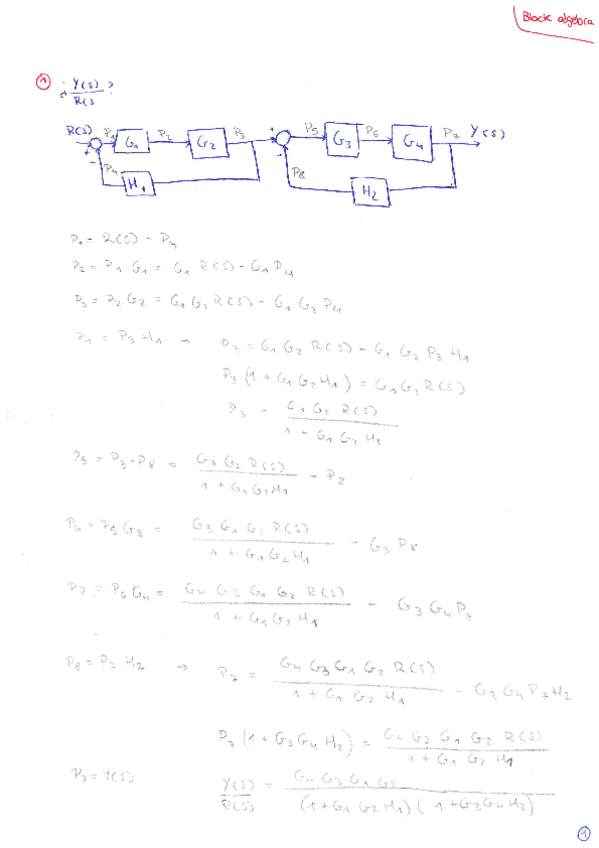 Block algebra
1 ¿ Y(s)/R(s ?
R(s) + - P1 G1 P2 G2 P3 + - P5 G3 P6 G4 P7 Y(s)
P4 H1 P8 H2
P1 = R(s) - P4
P2 = P1 G1 = G1 R(s) - G1 P4
P3 = P2 G2 = G1 G2 R(s) - G1 G2 P4
P4 = P3 H1 → P3 = G1 G2 R(s) - G1 G2 P3 H1
P3 (1 + G1 G2 H1) = G1 G2 R(s)
P3 = G1 G2 R(s) / 1 + G1 G2 H1
P5 = P3 - P8 = G1 G2 R(s) / 1 + G1 G2 H1 - P8
P6 = P5 G3 = G3 G1 G2 R(s) / 1 + G1 G2 H1 - G3 P8
P7 = P6 G4 = G4 G3 G1 G2 R(s) / 1 + G1 G2 H1 - G3 G4 P8
P8 = P7 H2 → P7 = G4 G3 G1 G2 R(s) / 1 + G1 G2 H1 - G3 G4 P7 H2
P7 (1 + G3 G4 H2) = G4 G3 G1 G2 R(s) / 1 + G1 G2 H1
P7 = Y(s) Y(s)/R(s) = G4 G3 G1 G2 / (1 + G1 G2 H1) (1 + G3 G4 H2)
1